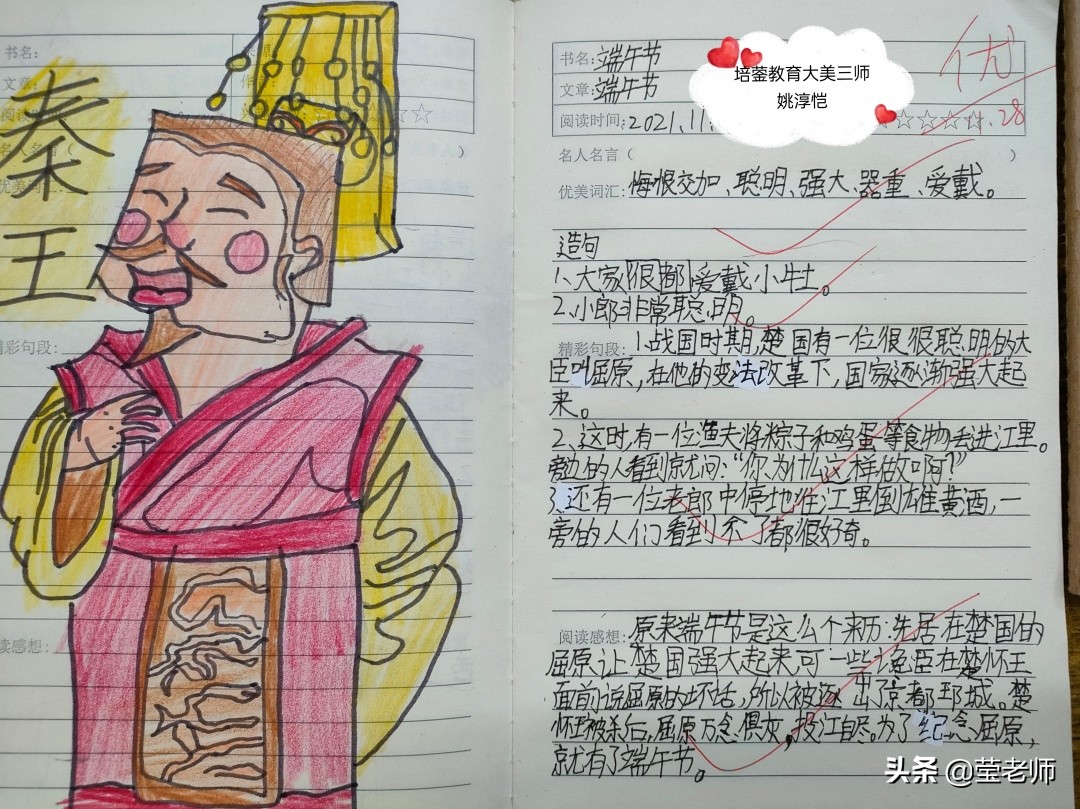 书名:
文章:
阅读
秦王
优美词
精彩句段:
阅读感想:
书名: 端午节
文章: 端午节
阅读时间: 2021.11.
☆☆☆☆☆
优
11.28
培蓥教育大美三师
姚淳恺
名人名言( )
优美词汇: 悔恨交加、聪明、强大、器重、爱戴。
造句
1、大家很都爱戴小牛土。
2、小郎非常聪明。
精彩句段: 1.战国时期,楚国有一位很很聪明的大
臣叫屈原,在他的变法改革下,国家逐渐强大起
来。
2、这时,有一位渔夫将粽子和鸡蛋等食物丢进江里。
旁边的人看到京尤问:“你为什么这样做啊?”
3.还有一位老郎中停地往江里倒雄黄酒,一
旁的人们看到不了都很好奇。
阅读感想: 原来端午节是这么个来历:先居在楚国的
屈原让楚国强大起来可一些 臣在楚怀王
面前说屈原的坏话,所以被逐出了京都 城。楚
怀王被杀后,屈原万念俱灰,投江自尽。为了纪念屈原,
就有了端午节。
头条 @莹老师